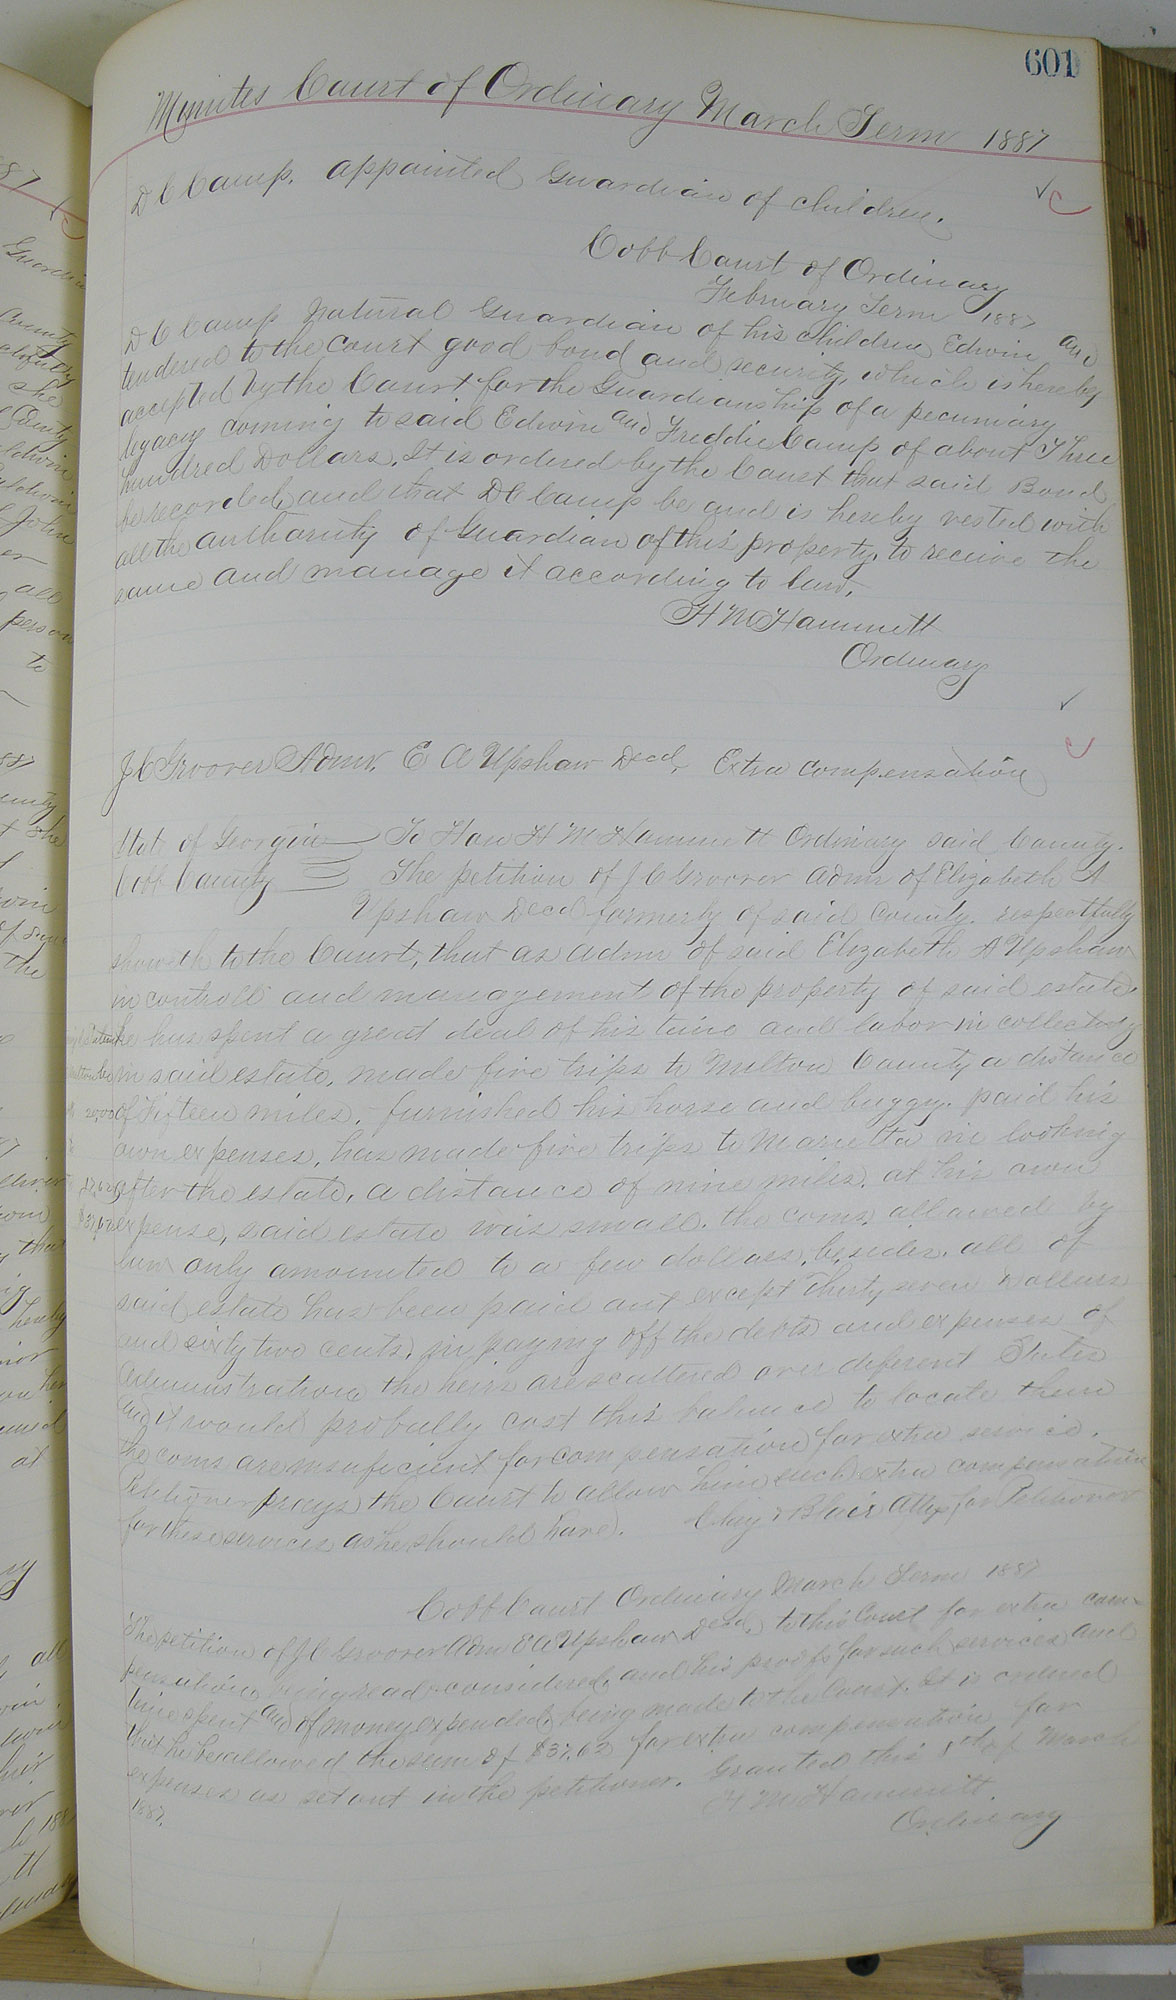 601
Minutes Court of Ordinary March Term 1887
D C Camp. appointed Guardian of children.
Cobb Court of Ordinary
February Term 1887
D C Camp Natural Guardian of his children Edwin and
tendered to the court good bond and security, which is hereby
accepted by the Court for the Guardianship of a pecuniary
legacy coming to said Edwin and Freddie Camp of about Three
hundred Dollars. It is ordered by the Court that said Bond
be recorded and that D C Camp be and is hereby vested with
all the authority of Guardian of this property, to receive the
same and manage it according to law.
H M Hammett
Ordinary
J C Groover Admr. E A Upshaw Decd. Extra compensation
Stat of Georgia To Hon H M Hammett Ordinary said County.
Cobb County The petition of J C Groover Admr of Elizabeth A
Upshaw Decd formerly of said County. respectfully
showeth to the Court, that as admr of said Elizabeth A Upshaw
in controll and management of the property of said estate.
he has spent a great deal of his time and labor in collecting
in said estate, made five trips to Milton County a distance
of Fifteen miles, furnished his horse and buggy. paid his
own expenses, has made five trips to Marietta in looking
after the estate, a distance of nine miles. at his own
expense, said estate was small. the coms. allowed by
law only amounted to a few dollars, besides. all of
said estate has been paid out except Thirty seven Dollars
and sixty two cents. in paying off the debts and expenses of
Administration the heirs are scattered over diferent States
and it would probally cost this balance to locate them
the coms are insuficient for compensation for extra service.
Petitioner prays the Court to allow him such extra compensation
for these services as he should have. Clay & Blair Attys for Petitioner
Cobb Court Ordinary March Term 1887
The petition of J C Groover Adm E A Upshaw Decd. to this Court for extra com-
pensation being read & considered, and his proofs for such services and
time spent and of money expended, being made to the Court. It is ordered
that he be allowed the sum of $37.62 for extra compensation for
expenses as set out in the petitioner. Granted this 8th of March
1887.
H M Hammett
Ordinary